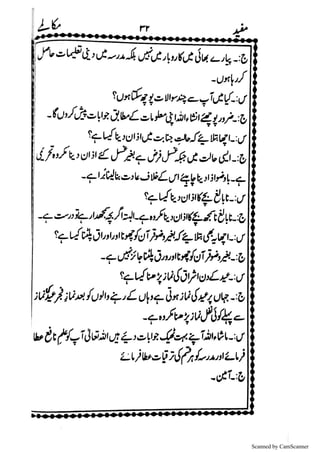 مفید ۳۲ مکالمے
ج:۔ پیارے بھائی میں کاروبار میں نہیں بلکہ مدرسہ میں دینی تعلیمات حاصل
کر رہا ہوں۔
س:۔ کیا میں آپ سے چند سوالات پوچھ سکتا ہوں؟
ج:۔ ضرور پوچھئے انشاءاللہ اپنی معلومات کے مطابق جوابات پیش کروں گا۔
س:۔ اچھا بتلائیے کہ حالت جنابت میں اذان دینا کیسا ہے؟
ج:۔ ایسی حالت میں جبکہ غسل فرض ہے بغیر غسل کئے اذان دینا مکروہ تحریمی
ہے۔ باوضو اذان دینا چاہیے اس کے خلاف عادت بنالینا برا ہے۔
س:۔ نابالغ بچے کا اذان دینا کیسا ہے؟
ج:۔ نابالغ ناسمجھ بچے کا اذان دینا مکروہ ہے۔ البتہ اگر بچہ سمجھدار ہے تو درست ہے۔
س:۔ اچھا یہ بھی بتلائیے کہ بغیر وضو قرآن کو چھونا اور اوراق پلٹنا کیسا ہے؟
ج:۔ بغیر وضو قرآن کو چھونا اور ورق پلٹنا جائز نہیں ہے۔
س:۔ عید کے دن اشراق کی نماز پڑھنا کیسا ہے؟
ج:۔ جہاں پر عید کی نماز ہوتی ہے وہاں کے رہنے والوں کو بعد نماز فجر عید کی نماز
سے پہلے کوئی نفل نماز پڑھنا مکروہ ہے۔
س:۔ ماشاءاللہ آپ نے بہت ٹھیک جوابات دیئے ہیں اللہ تعالیٰ آپ کو علم نافع عطا
فرمائے اور مدرسہ کو ہر قسم کی ترقیات عطا فرمائے
ج:۔ آمین۔
Scanned by CamScanner